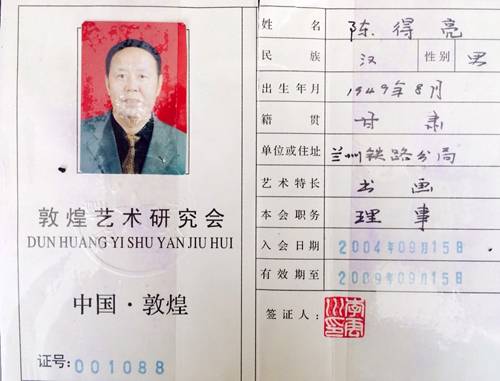 敦煌艺术研究会
DUN HUANG YI SHU YAN JIU HUI
中国·敦煌
证号:001088
姓名 陈得亮
民族 汉 性别 男
出生年月 1949年8月
籍贯 甘肃
单位或住址 兰州铁路分局
艺术特长 书画
本会职务 理事
入会日期 2004年09月15日
有效期至 2009年09月15日
签证人: